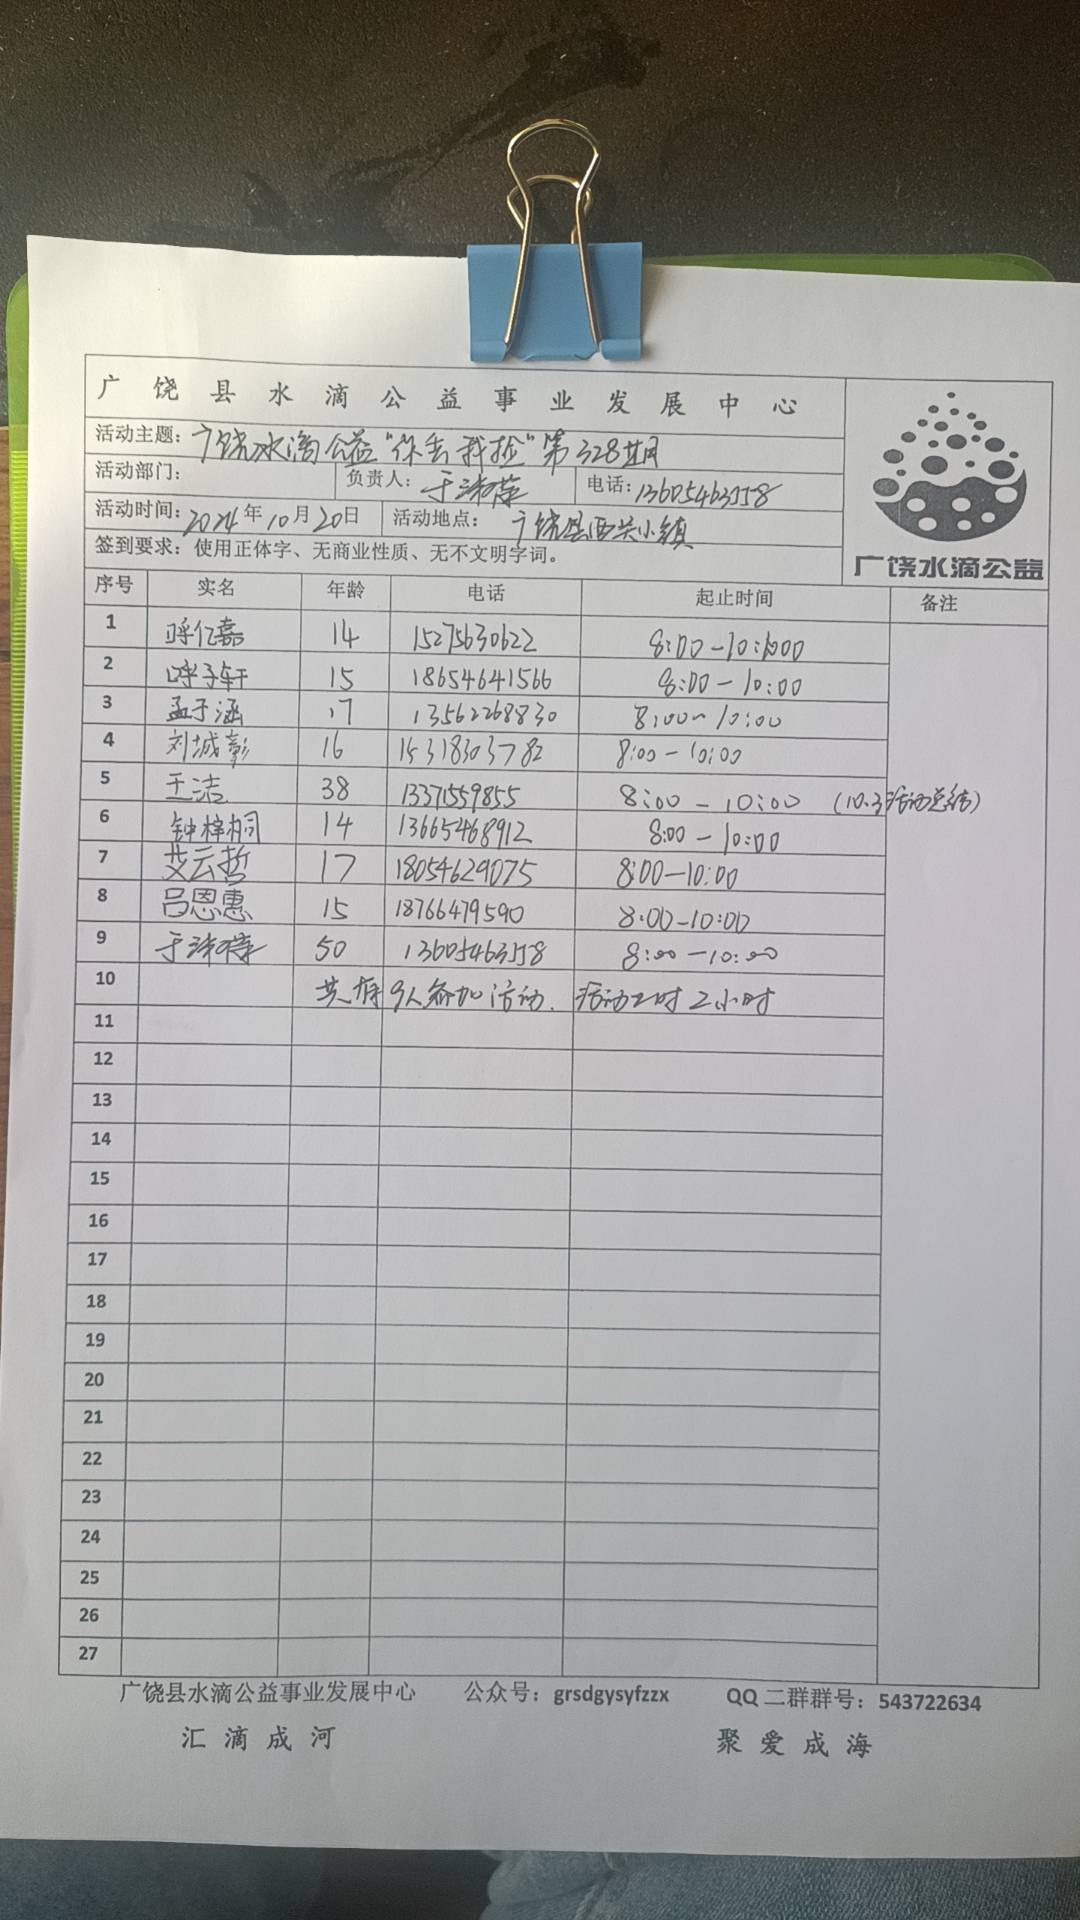 广饶县水滴公益事业发展中心
活动主题：广饶水滴公益“你丢我捡”第328期
活动部门： 负责人：于 电话：13605463158
活动时间：2024年10月20日 活动地点：广饶县西关小镇
签到要求：使用正体字、无商业性质、无不文明字词。
广饶水滴公益
序号 实名 年龄 电话 起止时间 备注
1 呼亿嘉 14 15275630622 8:00-10:00
2 呼子轩 15 18654641566 8:00-10:00
3 孟于涵 17 13562268830 8:00-10:00
4 刘城彰 16 15318303782 8:00-10:00
5 王洁 38 13371559855 8:00-10:00 (10.3活动总结)
6 钟梓桐 14 13665468912 8:00-10:00
7 艾云哲 17 18054629075 8:00-10:00
8 吕恩惠 15 18766479590 8:00-10:00
9 于 50 13605463158 8:00-10:00
10 共有9人参加活动. 活动工时2小时
11
12
13
14
15
16
17
18
19
20
21
22
23
24
25
26
27
广饶县水滴公益事业发展中心 公众号：grsdgysyfzzx QQ二群群号：543722634
汇滴成河 聚爱成海